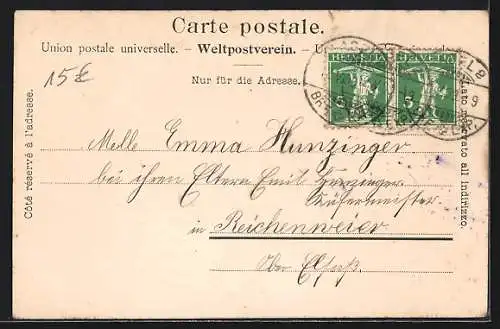 Carte postale.
Union postale universelle. – Weltpostverein. – U
Nur für die Adresse.
15 €
HELVETIA HELVETIA
5 5
9
Côté réservé à l'adresse.
Melle Emma Hunzinger
bei ihren Eltern Emil Hunzinger
Küfermeister
in Reichenweier
Ober Elsaß.
Lato riservato all' indirizzo.